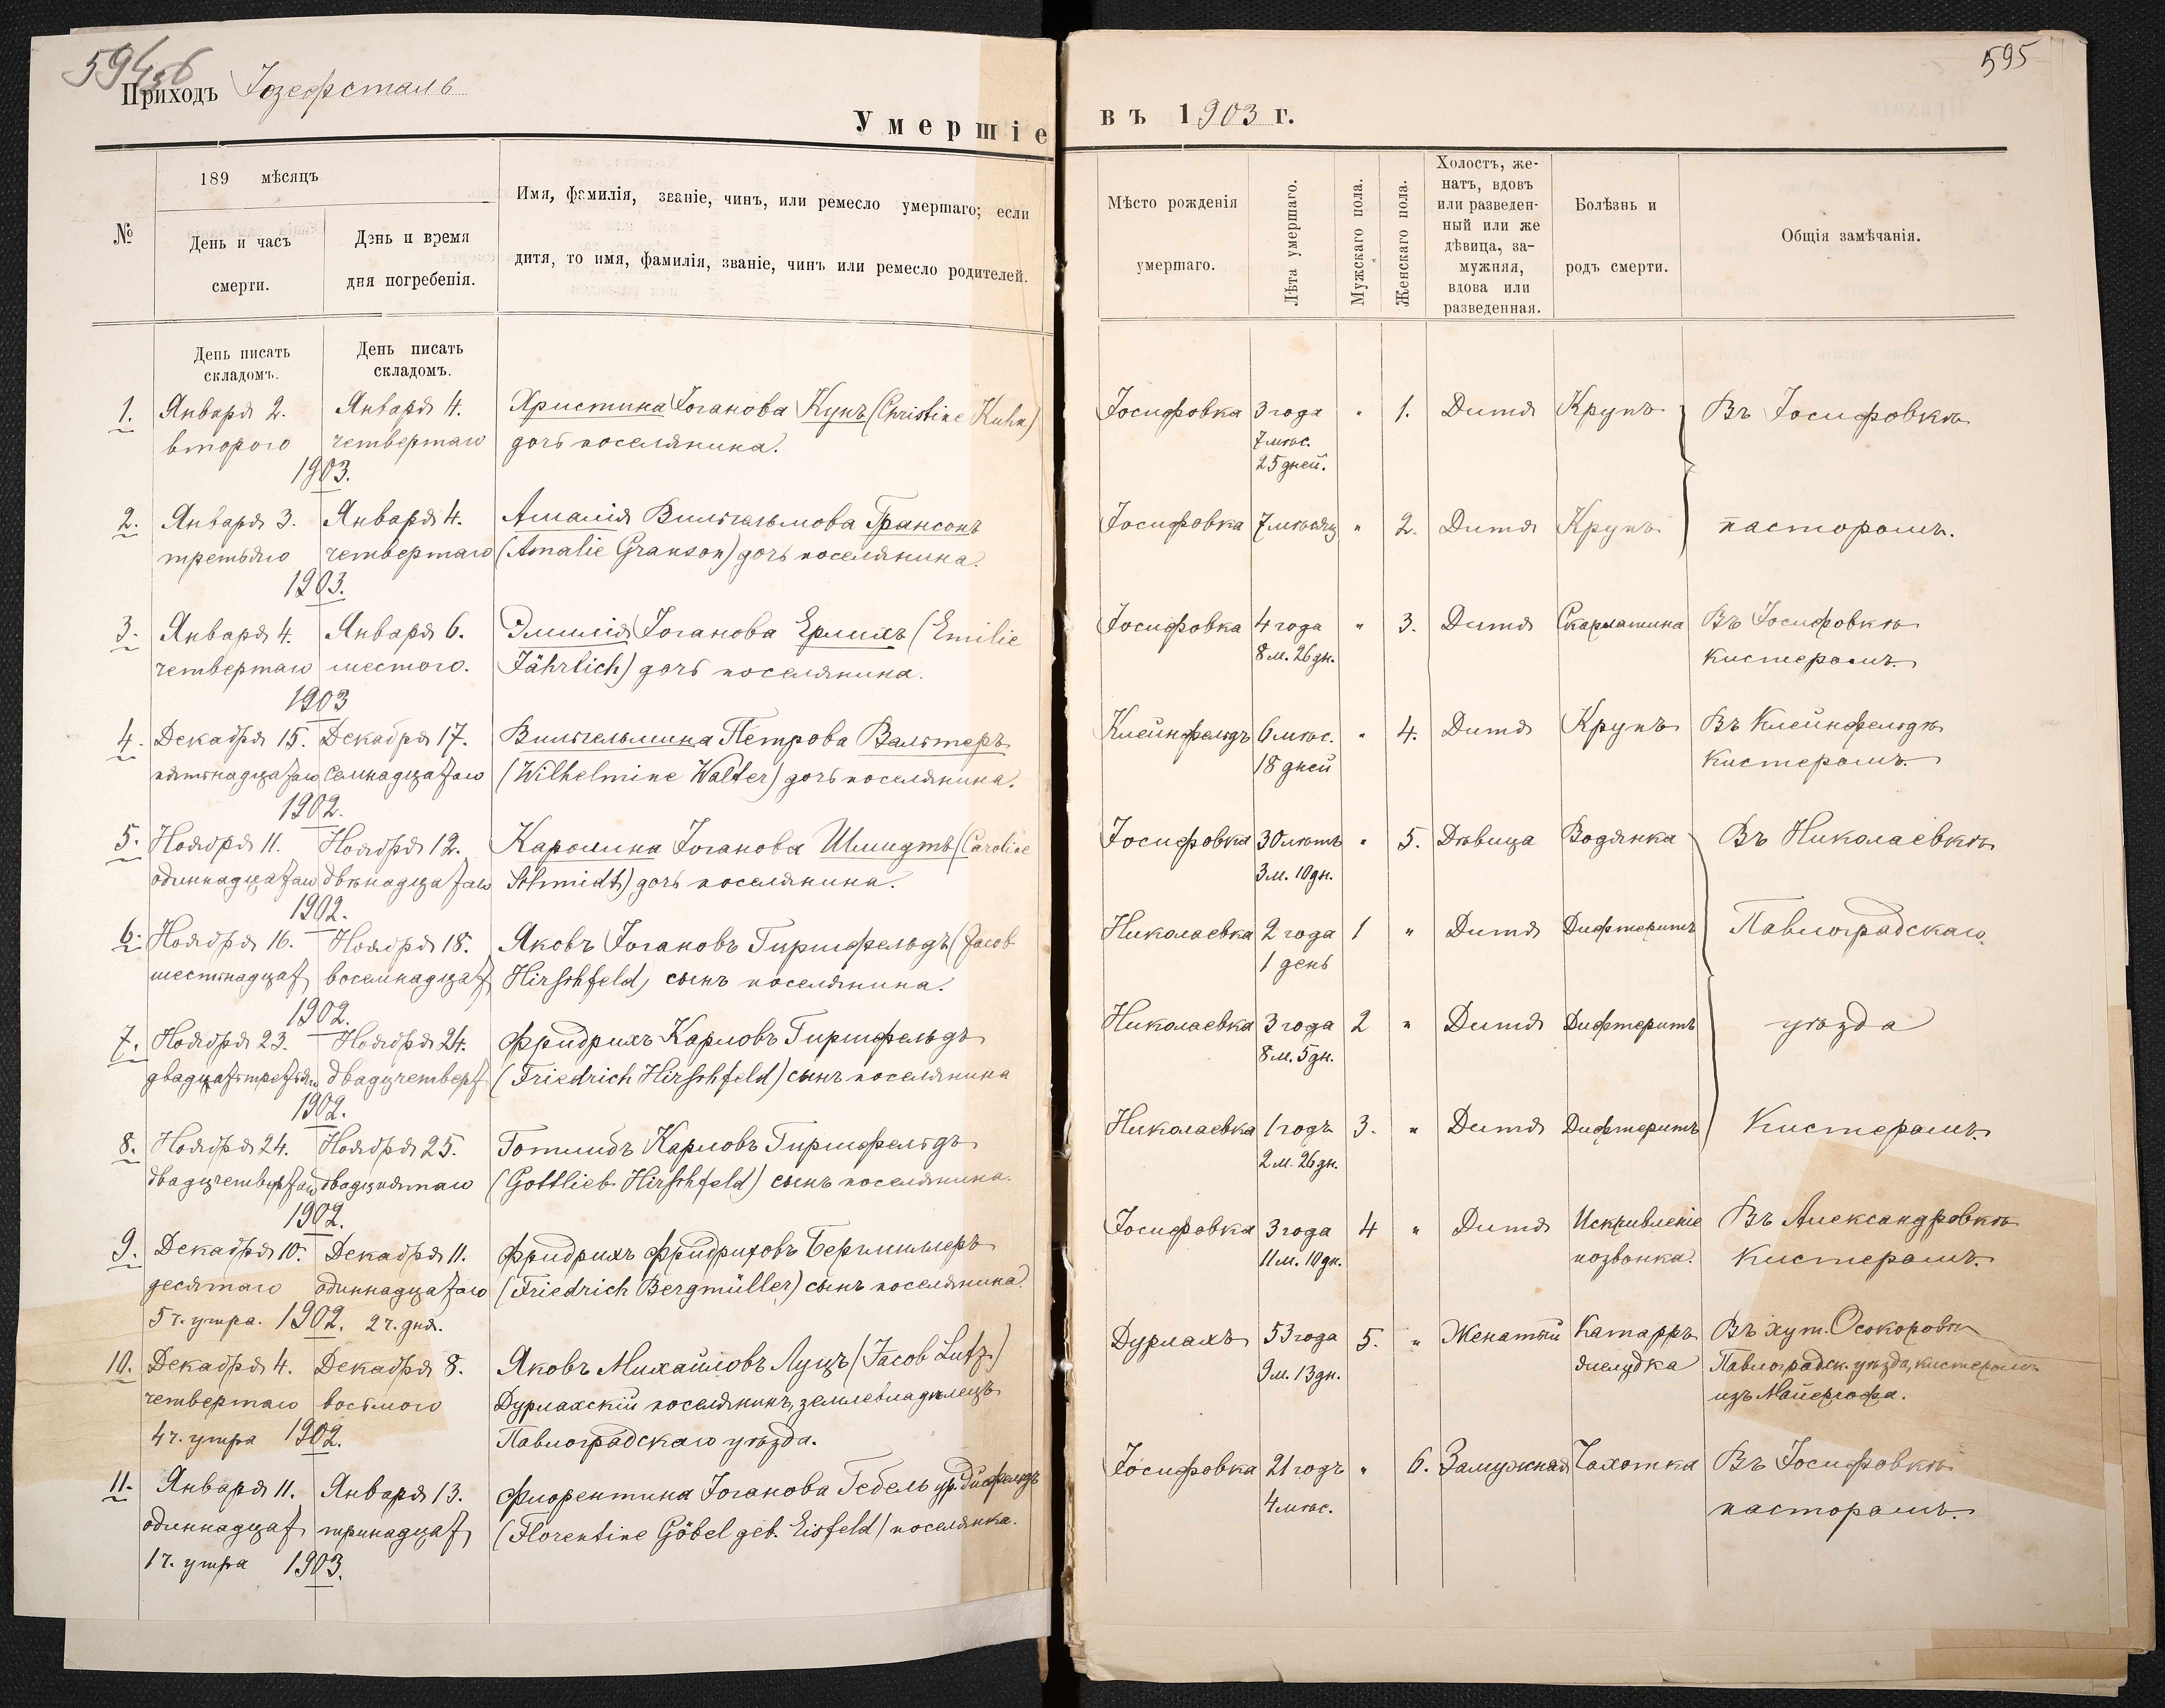 594об
Приходъ Іозефсталь
Умершіе
№
189 мѣсяцъ
День и часъ
смерти.
День и время
дня погребенія.
Имя, фамилія, званіе, чинъ, или ремесло умершаго; если
дитя, то имя, фамилія, званіе, чинъ или ремесло родителей.
День писать
складомъ.
День писать
складомъ.
1. Января 2. Января 4. Христина Іоганова Кунъ (Christine Kuhn)
второго четвертаго дочь поселянина.
1903.
2. Января 3. Января 4. Амалія Вильгельмова Грансонъ
третьяго четвертаго (Amalie Granson) дочь поселянина.
1903.
3. Января 4. Января 6. Эмилія Іоганова Ерлихъ (Emilie
четвертаго шестого. Jährlich) дочь поселянина.
1903
4. Декабря 15. Декабря 17. Вильгельмина Петрова Вальтеръ
пятнадцатаго Семнадцатаго (Wilhelmine Walter) дочь поселянина.
1902.
5. Ноября 11. Ноября 12. Каролина Іоганова Шмидтъ (Caroline
одиннадцатаго двѣнадцатаго Schmidt) дочь поселянина.
1902.
6. Ноября 16. Ноября 18. Яковъ Іогановъ Гиршфельдъ (Jacob
шестнадцат восемнадцат Hirschfeld) сынъ поселянина.
1902.
7. Ноября 23. Ноября 24. Фридрихъ Карловъ Гиршфельдъ
двадцатьтретьяго двадцчетверт (Friedrich Hirschfeld) сынъ поселянина
1902.
8. Ноября 24. Ноября 25. Готлибъ Карловъ Гиршфельдъ
двадцчетвертаго двадцпятаго (Gottlieb Hirschfeld) сынъ поселянина.
1902.
9. Декабря 10. Декабря 11. Фридрихъ Фридриховъ Бергмиллеръ
десятаго одиннадцатаго (Friedrich Bergmüller) сынъ поселянина.
5 ч. утра. 1902. 2 ч. дня.
10. Декабря 4. Декабря 8. Яковъ Михайловъ Луцъ (Jacob Lutz.)
четвертаго восьмого Дурлахскій поселянинъ, землевладѣлецъ
4 ч. утра 1902. Павлоградскаго уѣзда.
11. Января 11. Января 13. Флорентина Іоганова Гебель ур.
одиннадцат тринадцат (Florentine Göbel geb. Eisfeld) поселянка.
1 ч. утра 1903.
595
въ 1903 г.
Мѣсто рожденія
умершаго.
Лѣта умершаго.
Мужскаго пола.
Женскаго пола.
Холостъ, же-
натъ, вдовъ
или разведен-
ный или же
дѣвица, за-
мужняя,
вдова или
разведенная.
Болѣзнь и
родъ смерти.
Общія замѣчанія.
Іосифовка 3 года " 1. Дитя Крупъ Въ Іосифовкѣ
7 мѣс.
25 дней.
Іосифовка 7 мѣсяц " 2. Дитя Крупъ пасторомъ.
Іосифовка 4 года " 3. Дитя Скарлатина Въ Іосифовкѣ
8 м. 26 дн. Кистеромъ.
Клейнфельдъ 6 мѣс. " 4. Дитя Крупъ Въ Клейнфельдѣ
18 дней Кистеромъ.
Іосифовка 30 лѣтъ " 5. Дѣвица Водянка Въ Николаевкѣ
3 м. 10 дн.
Николаевка 2 года 1 " Дитя Дифтеритъ Павлоградскаго
1 день
Николаевка 3 года 2 " Дитя Дифтеритъ уѣзда
8 м. 5 дн.
Николаевка 1 годъ 3. " Дитя Дифтеритъ Кистеромъ.
2 м. 26 дн.
Іосифовка 3 года 4 " Дитя Искривленіе Въ Александровкѣ
11 м. 10 дн. позвонка. Кистеромъ.
Дурлахъ 53 года 5. " Женатый Катарръ Въ хут. Осокоровкѣ
9 м. 13 дн. желудка Павлоградск. уѣзда, кистеромъ
изъ Майергофа.
Іосифовка 21 годъ " 6. Замужная Чахотка Въ Іосифовкѣ
4 мѣс. пасторомъ.